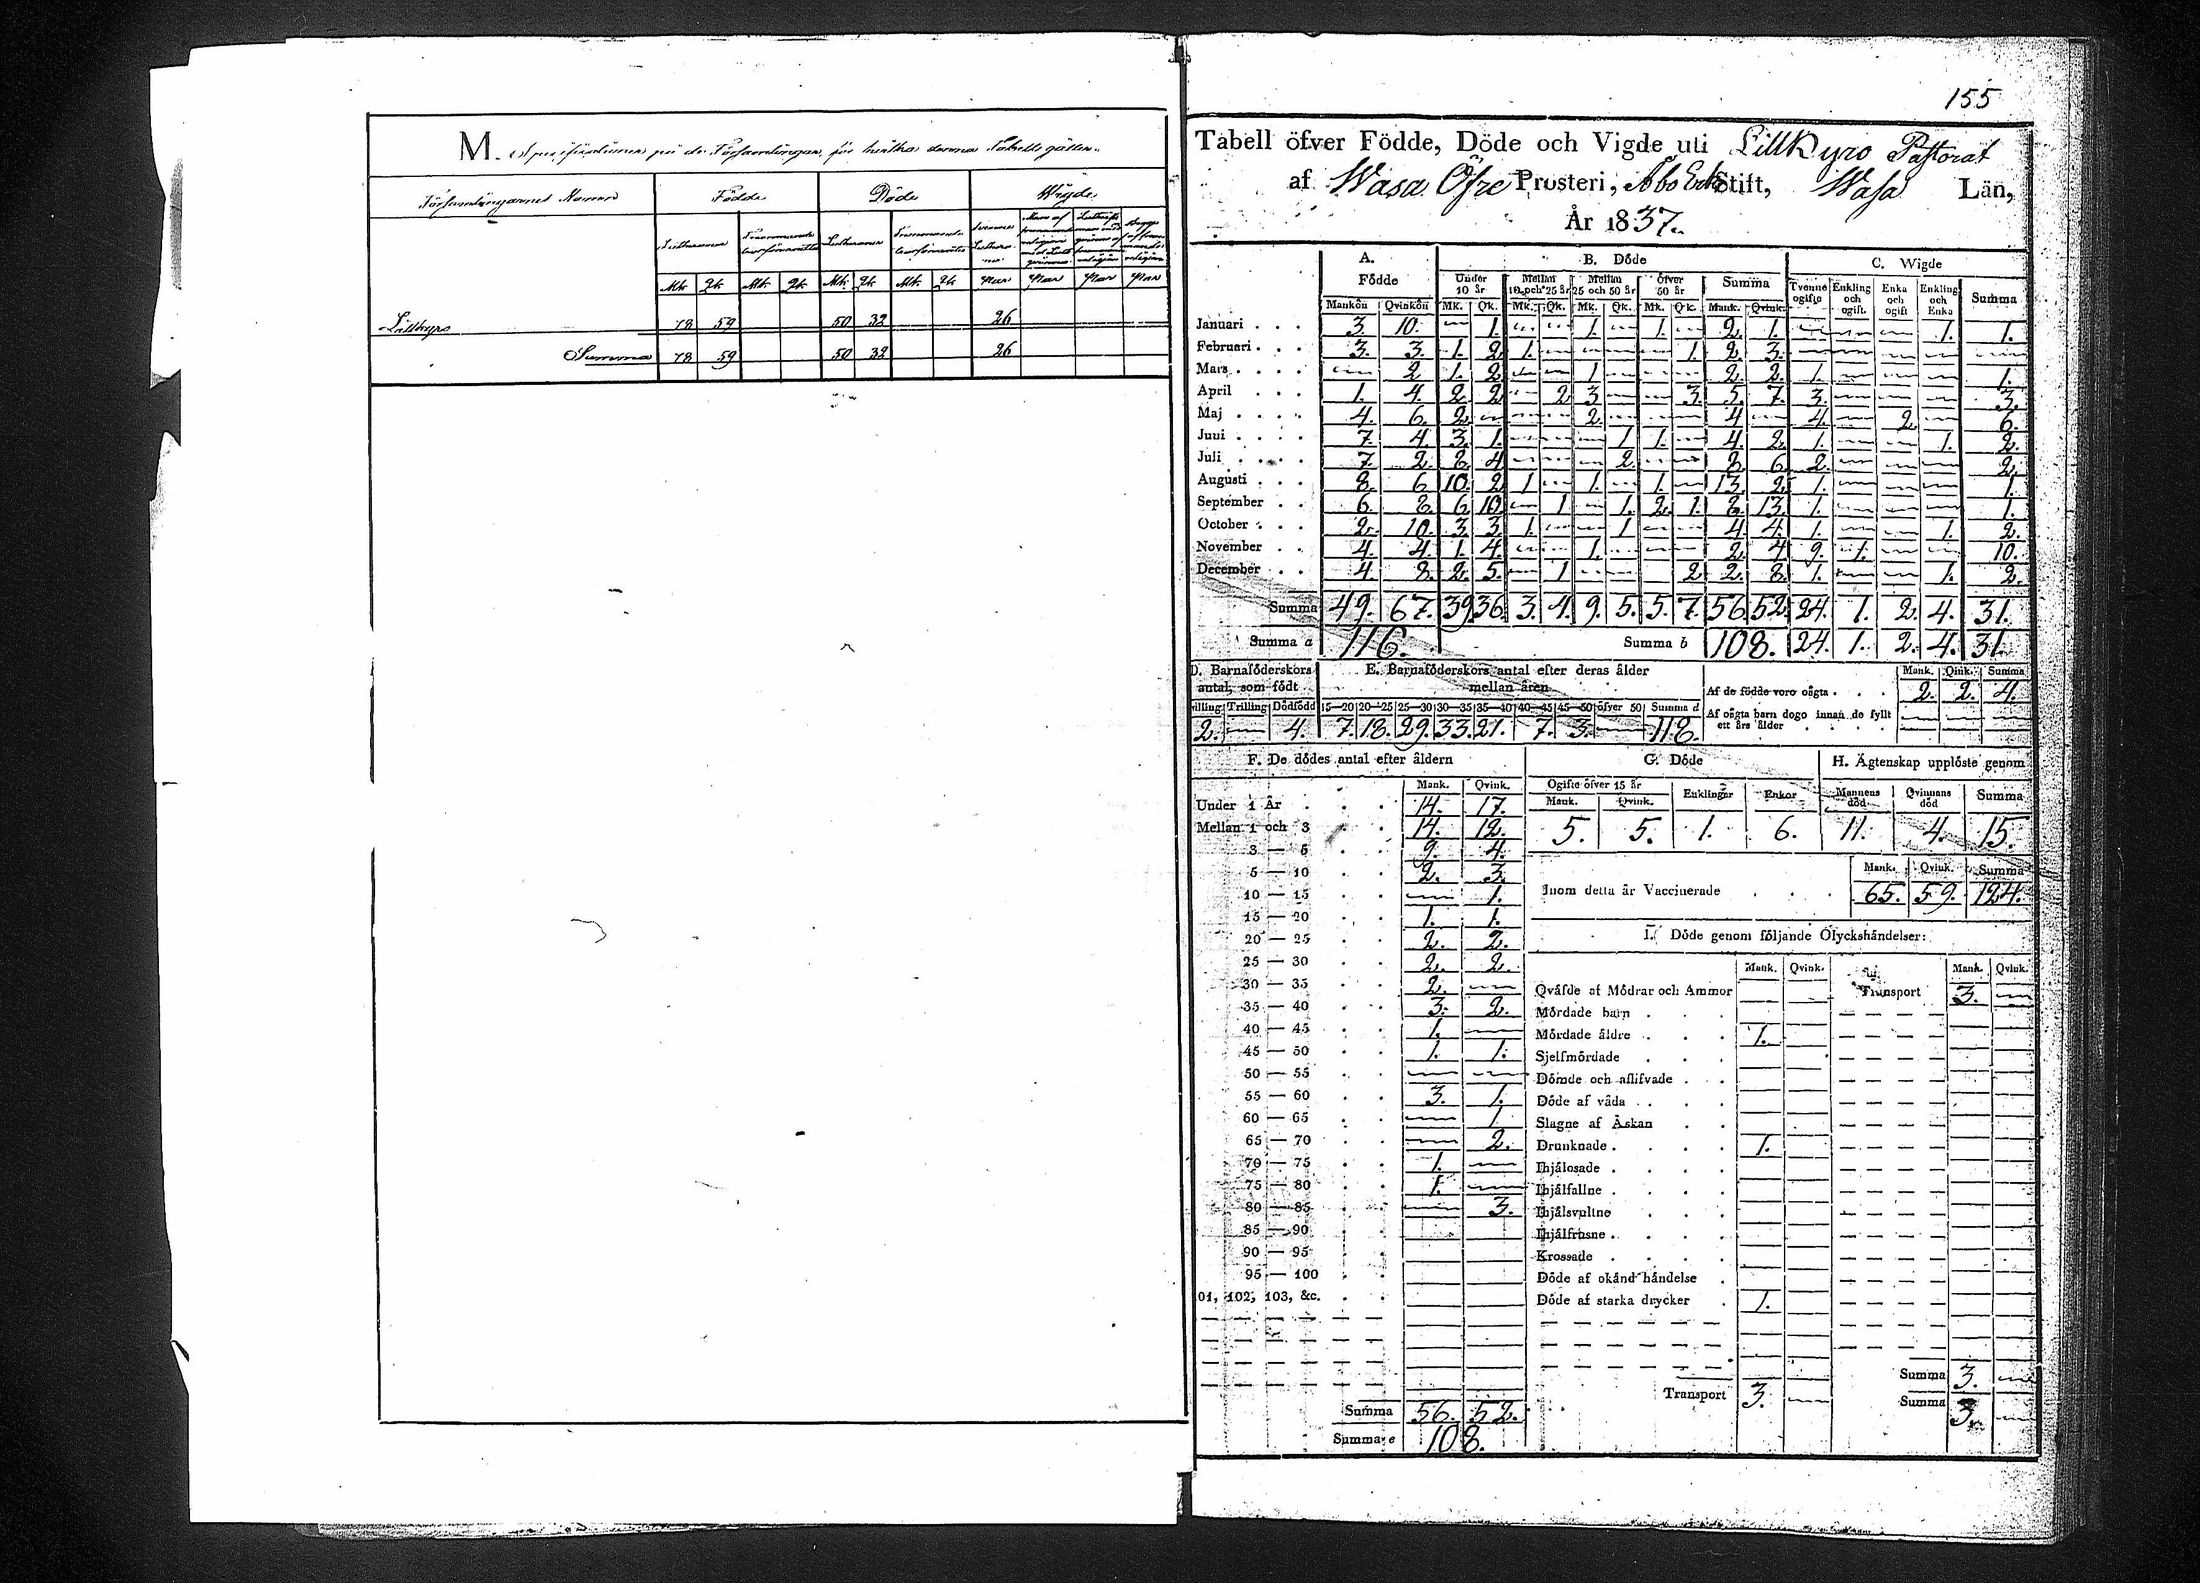 M. Specifikationer på de Församlingar, för hvilka denna Tabell gäller.
Församlingarnes Namn Födde Döde Wigde
Lutheraner Lutheraner
Mk Qk Mk Qk Mk Qk Mk Qk Par Par Par Par
Lillkyro 78 59 50 32 26
Summa 78 59 50 32 26
155
Tabell öfver Födde, Döde och Vigde uti LillKyro Pastorat
af Wasa Öfre Prosteri, Åbo Erke Stift, Wasa Län,
År 1837.
A. Födde B. Döde C. Wigde
Under 10 år Mellan 10 och 25 år Mellan 25 och 50 år Öfver 50 år Summa Tvenne ogifte Enkling och ogift. Enka och ogift Enkling och Enka Summa
Mankön Qvinkön Mk. Qk. Mk. Qk. Mk. Qk. Mk. Qk. Mank. Qvink.
Januari . . . 3. 10. — 1. — — 1. — 1. — 2. 1. — — — 1. 1.
Februari . . . 3. 3. 1. 2. 1. — — — — 1. 2. 3. — — — — —
Mars . . . . — 2 1. 2. — — 1. — — — 2. 2. 1. — — — 1.
April . . . 1. 4. 2. 2. — 2 3 — — 3. 5. 7. 3. — — — 3.
Maj . . . . 4. 6. 2. — — — 2. — — — 4. — 4. — 2. — 6.
Juni . . . . 7. 4. 3. 1. — — — 1. 1. — 4. 2. 1. — — 1. 2.
Juli . . . . 7. 2. 8. 4. — — — 2. — — 8. 6. 2. — — — 2.
Augusti . . . 8. 6 10. 2. 1 — 1. — 1. — 13. 2. 1. — — — 1.
September . . 6. 8. 6. 10. — 1. — 1. 2. 1. 8. 13. 1. — — — 1.
October . . . 2. 10. 3. 3. 1. — — 1 — — 4. 4. 1. — — 1. 2.
November . . 4. 4. 1. 4. — — 1. — — — 2. 4 9. 1. — — 10.
December . . 4. 8. 2. 5. — 1 — — — 2 2. 8. 1. — — 1. 2.
Summa 49. 67. 39. 36. 3. 4. 9. 5. 5. 7. 56. 52. 24. 1. 2. 4. 31.
Summa a 116. Summa b 108. 24. 1. 2. 4. 31.
D. Barnaföderskors antal, som födt
E. Barnaföderskors antal efter deras ålder mellan åren
Mank. Qink. Summa
Af de födde voro oägta . . . 2. 2. 4.
Af oägta barn dogo innan de fyllt ett års ålder . . . . — — —
Tvilling Trilling Dödfödd 15—20 20—25 25—30 30—35 35—40 40—45 45—50 öfver 50 Summa d
2. — 4. 7. 18. 29. 33. 21. 7. 3. — 118.
F. De dödes antal efter åldern
Mank. Qvink.
Under 1 År . . . 14. 17.
Mellan 1 och 3 . . 14. 12.
3 — 5 . . 9. 4.
5 — 10 . . 2. 3.
10 — 15 . . — 1.
15 — 20 . . 1. 1.
20 — 25 . . 2. 2.
25 — 30 . . 2. 2.
30 — 35 . . 2. —
35 — 40 . . 3. 2.
40 — 45 . . 1. —
45 — 50 . . 1. 1.
50 — 55 . . — —
55 — 60 . . 3. 1.
60 — 65 . . — 1.
65 — 70 . . — 2.
70 — 75 . . 1. —
75 — 80 . . 1. —
80 — 85 . . — 3.
85 — 90
90 — 95
95 — 100
101, 102, 103, &c.
Summa 56. 52.
Summa e 108.
G. Döde
Ogifte öfver 15 år Enklingar Enkor
Mank. Qvink.
5. 5. 1. 6.
H. Ägtenskap upplöste genom
Mannens död Qvinnans död Summa
11. 4. 15.
Mank. Qvink. Summa
Inom detta år Vaccinerade . . . 65. 59. 124.
I. Döde genom följande Olyckshändelser:
Mank. Qvink. Mank. Qvink.
Qväfde af Mödrar och Ammor Transport 3. —
Mördade barn . . .
Mördade äldre . . . 1.
Sjelfmördade . . .
Dömde och aflifvade . .
Döde af våda . . . .
Slagne af Åskan . .
Drunknade . . . . 1.
Ihjälosade . . . .
Ihjälfallne . . . .
Ihjälsvultne . . .
Ihjälfrusne . . . .
Krossade . . . .
Döde af okänd händelse .
Döde af starka drycker . 1.
Summa 3. —
Transport 3. — Summa 3. —